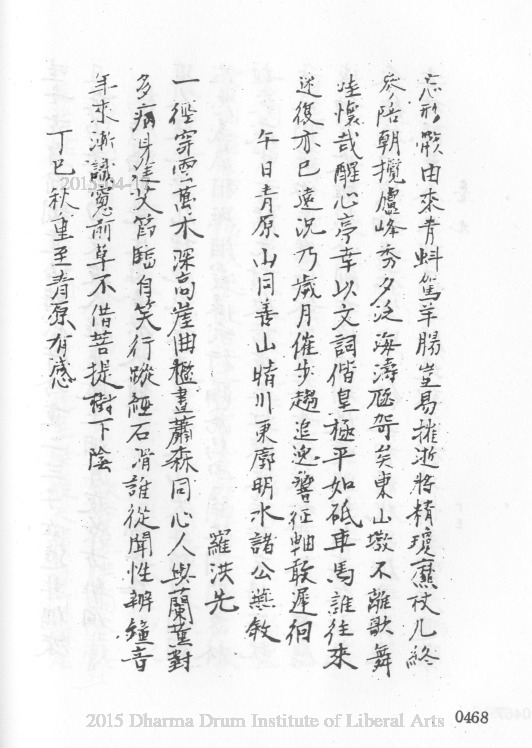 忘形慨由來青蚪篤羊腸豈易摧逝將精瓊爢杖几終
參陪朝攬廬峰秀夕泛海濤隨奇矣東山墩不離歌舞
哇懷哉醒心亭幸以文詞偕皇極平如砥車馬誰往來
迷復亦已遠況乃歲月催步趨追逸響征軸敢遲徊
午日青原山同善山晴川東廓明水諸公燕敘
羅洪先
一徑穿雲萬木深高崖曲檻晝蕭森同心人與蘭薰對
多病身隨艾節臨自笑行蹤經石滑誰從聞性辨鐘音
年來漸識窻前草不借菩提樹下陰
丁巳秋重至青原有感
2015-04-
2015 Dharma Drum Institute of Liberal Arts
0468